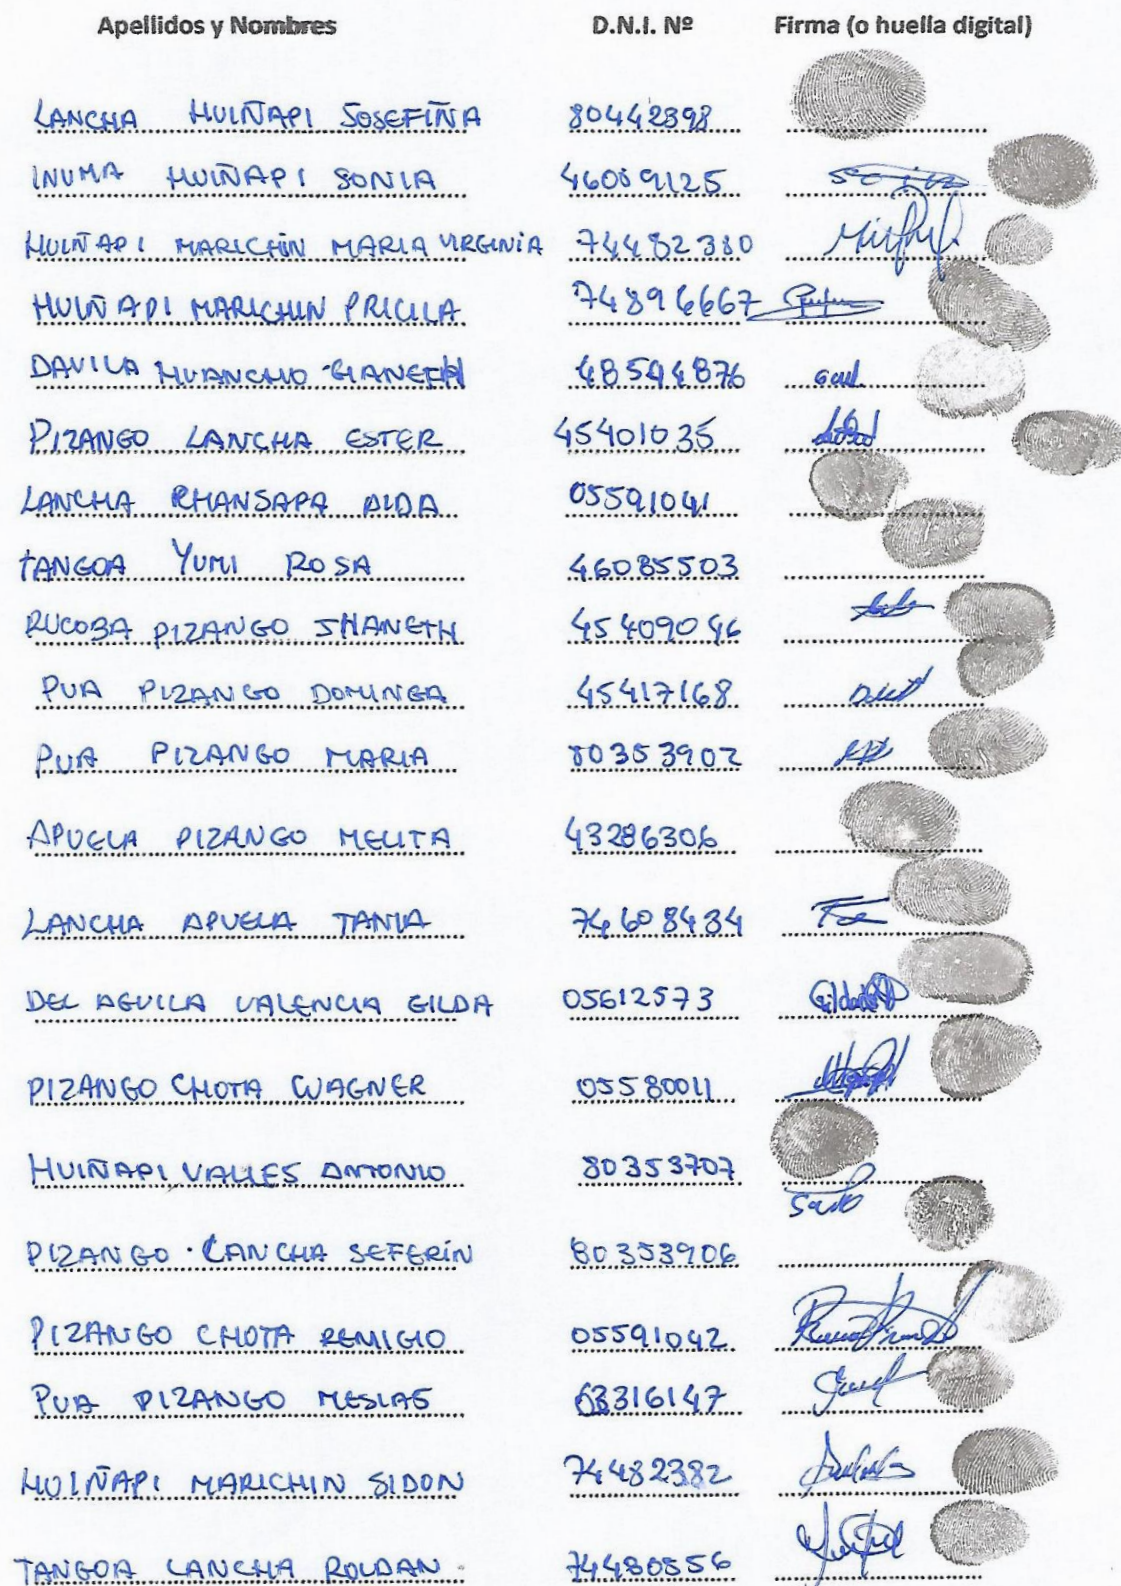 Apellidos y Nombres D.N.I. Nº Firma (o huella digital)
LANCHA HUIÑAPI JOSEFIÑA 80442398
INUMA HUIÑAPI SONIA 46089125
HUIÑAPI MARICHIN MARIA VIRGINIA 74482380
HUIÑAPI MARICHIN PRICILA 74896667
DAVILA HUANCHO GIANETH 48594876
PIZANGO LANCHA ESTER 45401035
LANCHA RHANSAPA AIDA 05591041
TANGOA YUMI ROSA 46085503
RUCOBA PIZANGO JHANETH 45409046
PUA PIZANGO DOMINGA 45417168
PUA PIZANGO MARIA 80353902
APUELA PIZANGO MELITA 43286306
LANCHA APUELA TANIA 74608434
DEL AGUILA VALENCIA GILDA 05612573
PIZANGO CHOTA WAGNER 05580011
HUIÑAPI VALLES ANTONIO 80353707
PIZANGO LANCHA SEFERIN 80353906
PIZANGO CHOTA REMIGIO 05591042
PUA PIZANGO MESIAS 63316147
HUIÑAPI MARICHIN SIDON 74482382
TANGOA LANCHA ROLDAN 74480556